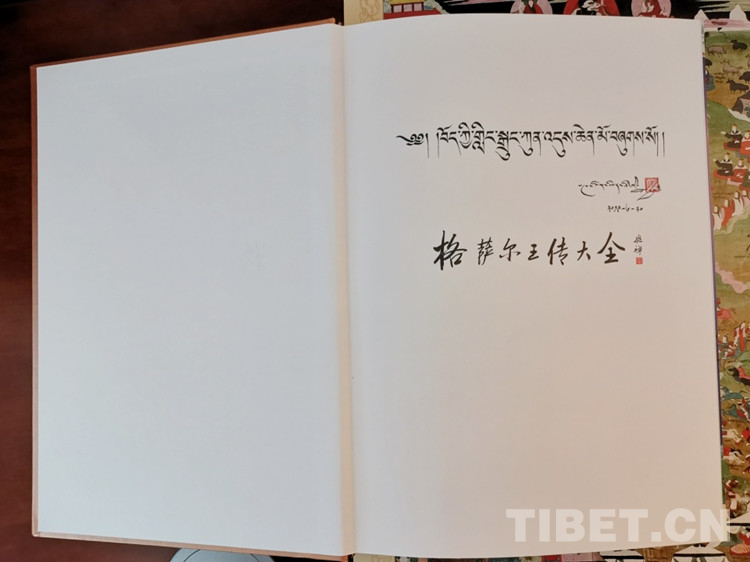 ༄༅། །བོད་ཀྱི་གླིང་སྒྲུང་ཀུན་འདུས་ཆེན་མོ་བཞུགས་སོ། །
格萨尔王传大全
TIBET.CN